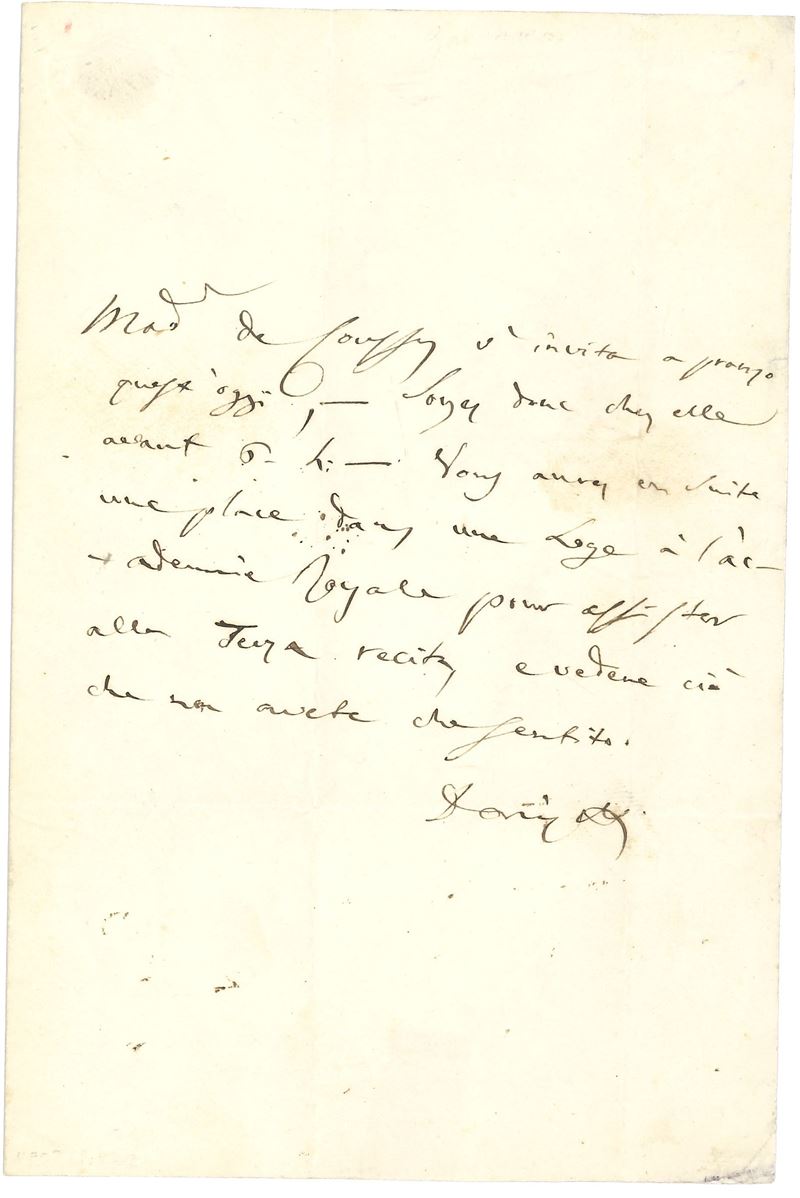 Mad.r de Coussy v'invita a pranzo
quest'oggi, — Soyez donc chez elle
avant 6. h: — Vous aurez en suite
une place dans une Loge à l'àc-
-ademie Royale pour assister
alla Terza recita, e vedere ciò
che non avete che sentito.
Donizetti